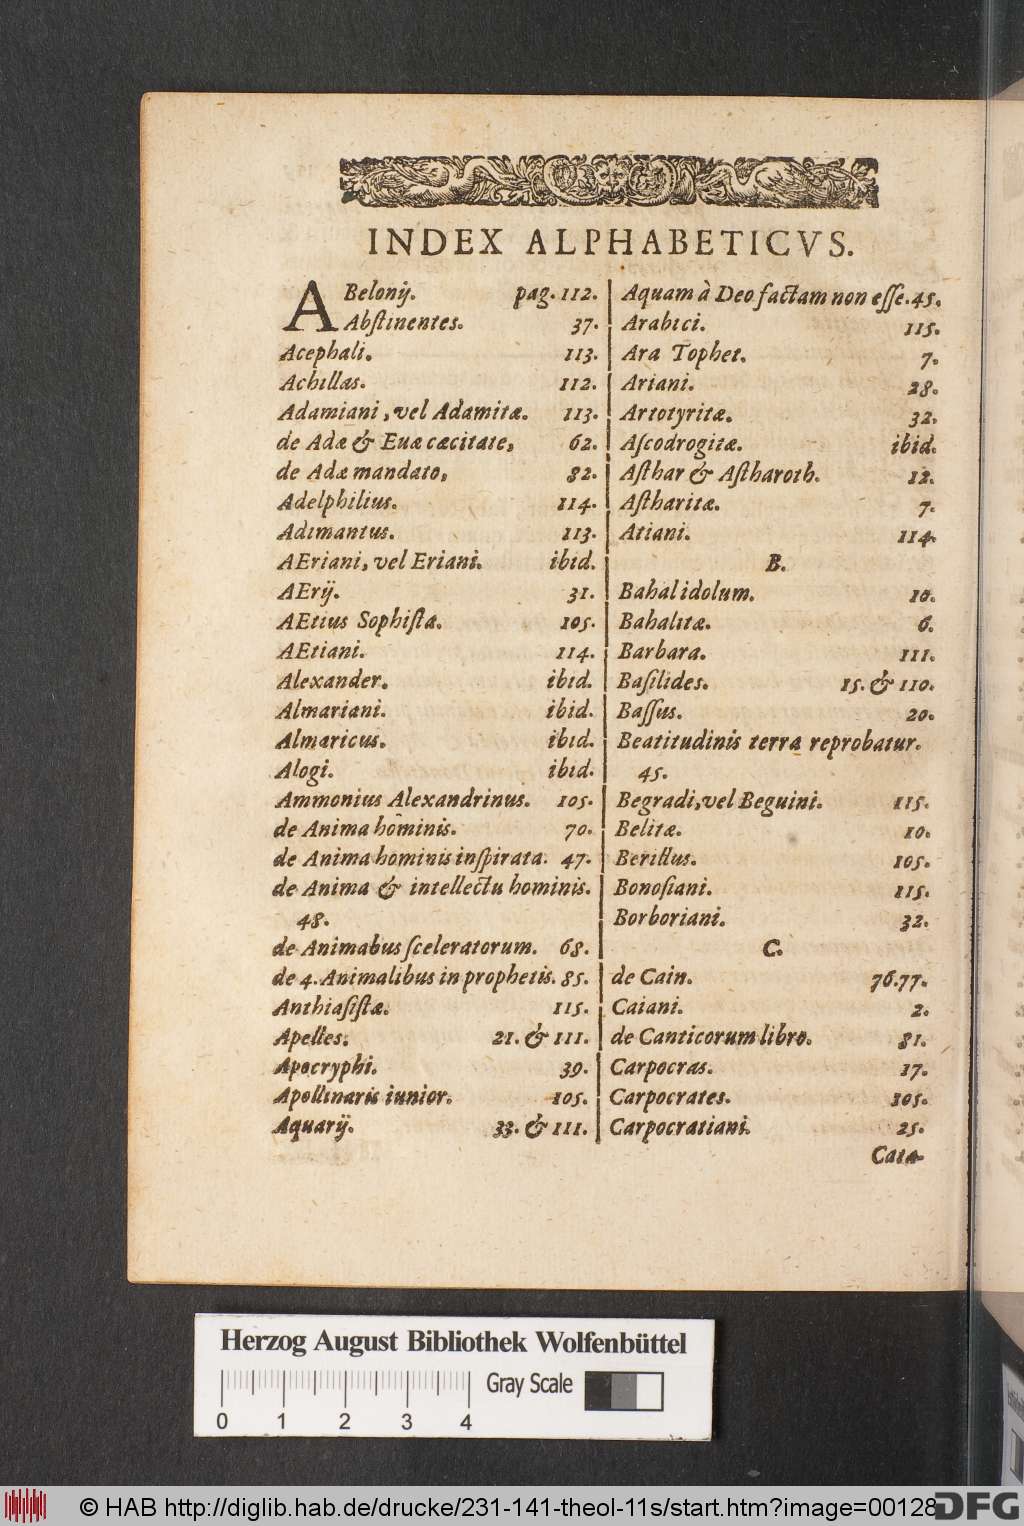 INDEX ALPHABETICVS.
ABelonij. pag. 112.
Abſtinentes. 37.
Acephali. 113.
Achillas. 112.
Adamiani, vel Adamitæ. 113.
de Adæ & Euæ cæcitate, 62.
de Adæ mandato, 82.
Adelphilius. 114.
Adimantus. 113.
AEriani, vel Eriani. ibid.
AErij. 31.
AEtius Sophiſta. 105.
AEtiani. 114.
Alexander. ibid.
Almariani. ibid.
Almaricus. ibid.
Alogi. ibid.
Ammonius Alexandrinus. 105.
de Anima hominis. 70.
de Anima hominis inſpirata. 47.
de Anima & intellectu hominis.
48.
de Animabus ſceleratorum. 68.
de 4. Animalibus in prophetis. 85.
Anthiaſiſtæ. 115.
Apelles. 21. & 111.
Apocryphi. 39.
Apollinaris iunior. 105.
Aquarij. 33. & 111.
Aquam à Deo factam non eſſe. 45.
Arabici. 115.
Ara Tophet. 7.
Ariani. 28.
Artotyritæ. 32.
Aſcodrogitæ. ibid.
Aſthar & Aſtharoth. 12.
Aſtharitæ. 7.
Atiani. 114.
B.
Bahal idolum. 10.
Bahalitæ. 6.
Barbara. 111.
Baſilides. 15. & 110.
Baſſus. 20.
Beatitudinis terra reprobatur.
45.
Begradi, vel Beguini. 115.
Belitæ. 10.
Berillus. 105.
Bonoſiani. 115.
Borboriani. 32.
C.
de Cain. 76.77.
Caiani. 2.
de Canticorum libro. 81.
Carpocras. 17.
Carpocrates. 105.
Carpocratiani. 25.
Cata-
Herzog August Bibliothek Wolfenbüttel
Gray Scale
0 1 2 3 4
© HAB http://diglib.hab.de/drucke/231-141-theol-11s/start.htm?image=00128
DFG